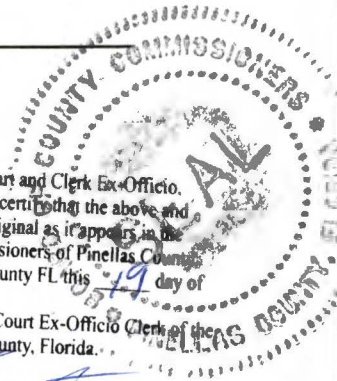 COUNTY COMMISSIONERS
SEAL
PINELLAS COUNTY,
art and Clerk Ex-Officio,
certify that the above and
iginal as it appears in the
sioners of Pinellas County
ounty FL this 19 day of
Court Ex-Officio Clerk of the
unty, Florida.